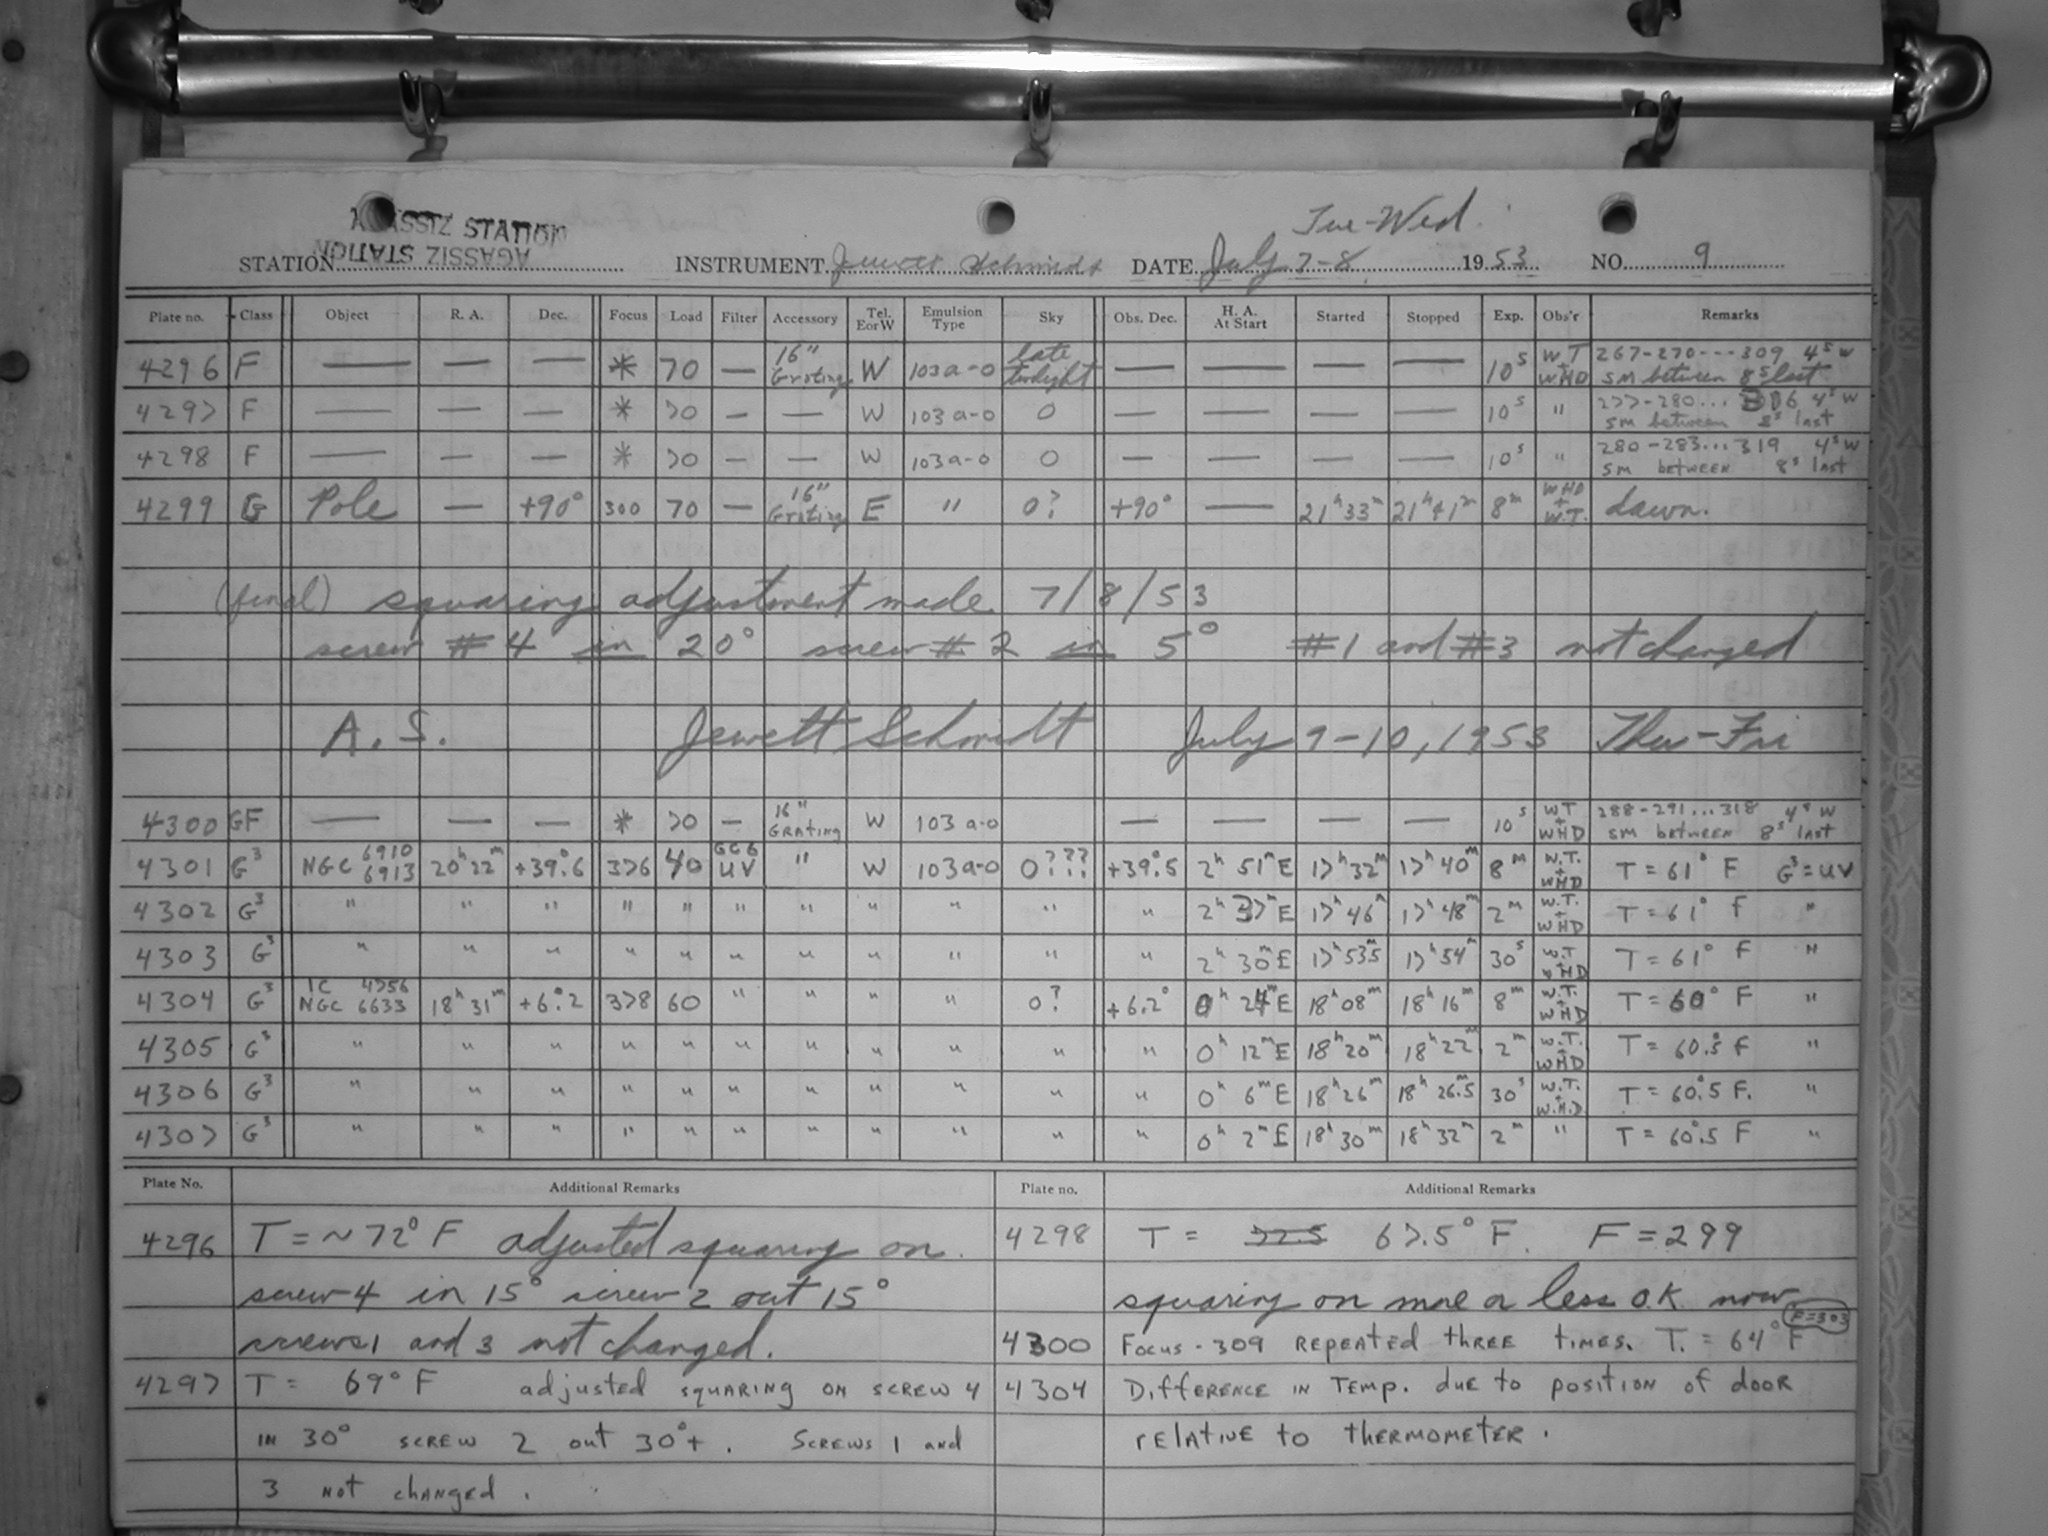 AGASSIZ STATION
AGASSIZ STATION
Tue-Wed.
STATION INSTRUMENT Jewett Schmidt DATE July 7-8 1953 NO. 9
Plate no. Class Object R. A. Dec. Focus Load Filter Accessory Tel. E or W Emulsion Type Sky Obs. Dec. H. A. At Start Started Stopped Exp. Obs'r Remarks
4296 F — — — * 70 — 16" Grating W 103a-O late twilight — — — — 10s WT + WHD 267-270---309 4s W 5M between 8s last
4297 F — — — * 70 — — W 103a-O 0 — — — — 10s " 277-280... 306 4s W 5M between 8s last
4298 F — — — * 70 — — W 103a-O 0 — — — — 10s " 280-283...319 4s W 5M between 8s last
4299 G Pole — +90° 300 70 — 16" Grating E " 0? +90° — 21h 33m 21h 41m 8m WHD + W.T. dawn.
(final) squaring adjustment made 7/8/53
screw #4 in 20° screw #2 in 5° #1 and #3 not changed
A. S. Jewett Schmidt July 9-10, 1953 Thu-Fri
4300 GF — — — * 70 — 16" GRATING W 103a-O — — — — 10s WT + WHD 288-291...318 4s W 5M between 8s last
4301 G3 NGC 6910 6913 20h 22m +39°.6 376 40 GC6 UV " W 103a-O 0??? +39°.5 2h 51m E 17h 32m 17h 40m 8m W.T. + WHD T = 61° F G3 = UV
4302 G3 " " " " " " " " " " " 2h 37m E 17h 46m 17h 48m 2m W.T. + WHD T = 61° F "
4303 G3 " " " " " " " " " " " 2h 30m E 17h 53.5m 17h 54m 30s W.T + WHD T = 61° F "
4304 G3 IC 4756 NGC 6633 18h 31m +6°.2 378 60 " " " " 0? +6.2° 0h 24m E 18h 08m 18h 16m 8m W.T. + WHD T = 60° F "
4305 G3 " " " " " " " " " " " 0h 12m E 18h 20m 18h 22m 2m W.T. + WHD T = 60.5° F "
4306 G3 " " " " " " " " " " " 0h 6m E 18h 26m 18h 26.5m 30s W.T. + W.H.D T = 60°.5 F. "
4307 G3 " " " " " " " " " " " 0h 2m E 18h 30m 18h 32m 2m " T = 60°.5 F "
Plate No. Additional Remarks Plate no. Additional Remarks
4296 T = ~72° F adjusted squaring on
screw 4 in 15° screw 2 out 15°
screws 1 and 3 not changed.
4297 T = 69° F adjusted squaring on screw 4
in 30° screw 2 out 30°+. Screws 1 and
3 not changed.
4298 T = 72.5 67.5° F. F = 299
squaring on more or less O.K. now
4300 Focus - 309 repeated three times. T. = 64° F F=303
4304 Difference in Temp. due to position of door
relative to thermometer.